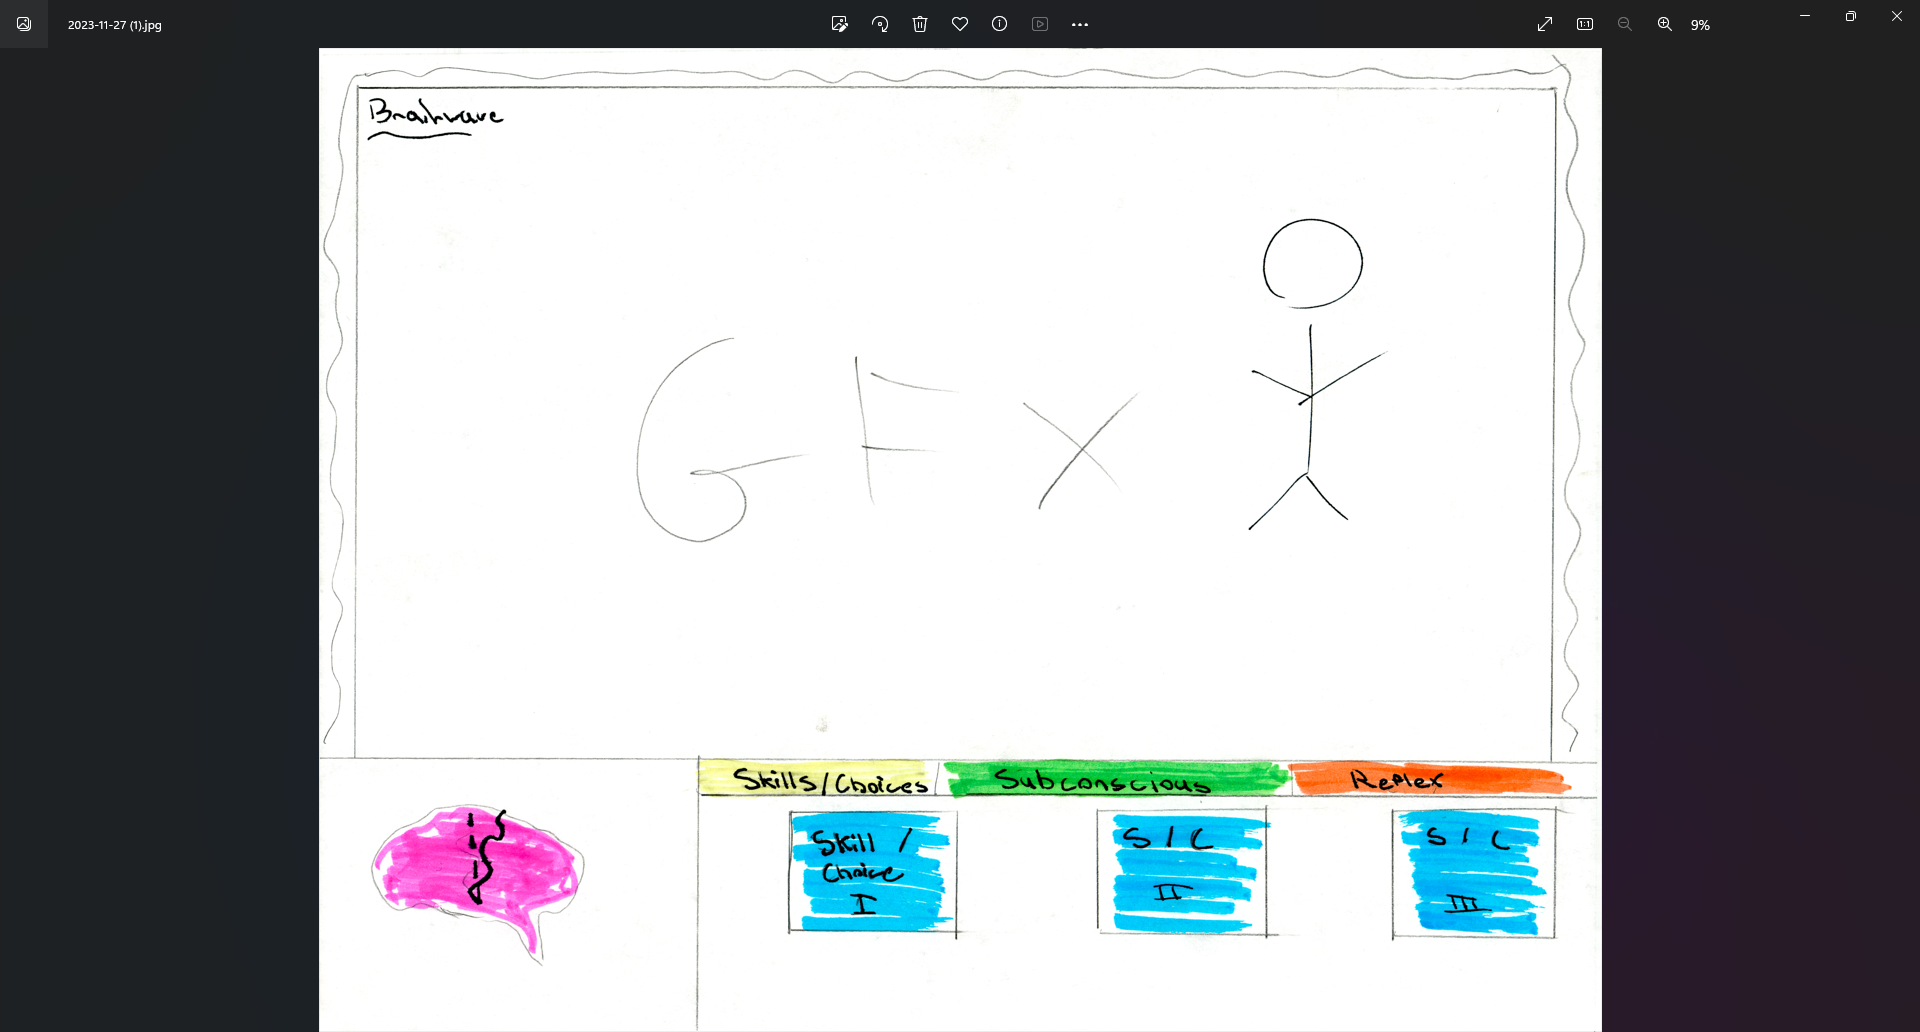 2023-11-27 (1).jpg
9%
Brainwave
GFX
Skills/Choices Subconscious Reflex
Skill /
Choice
I
S / C
II
S / C
III